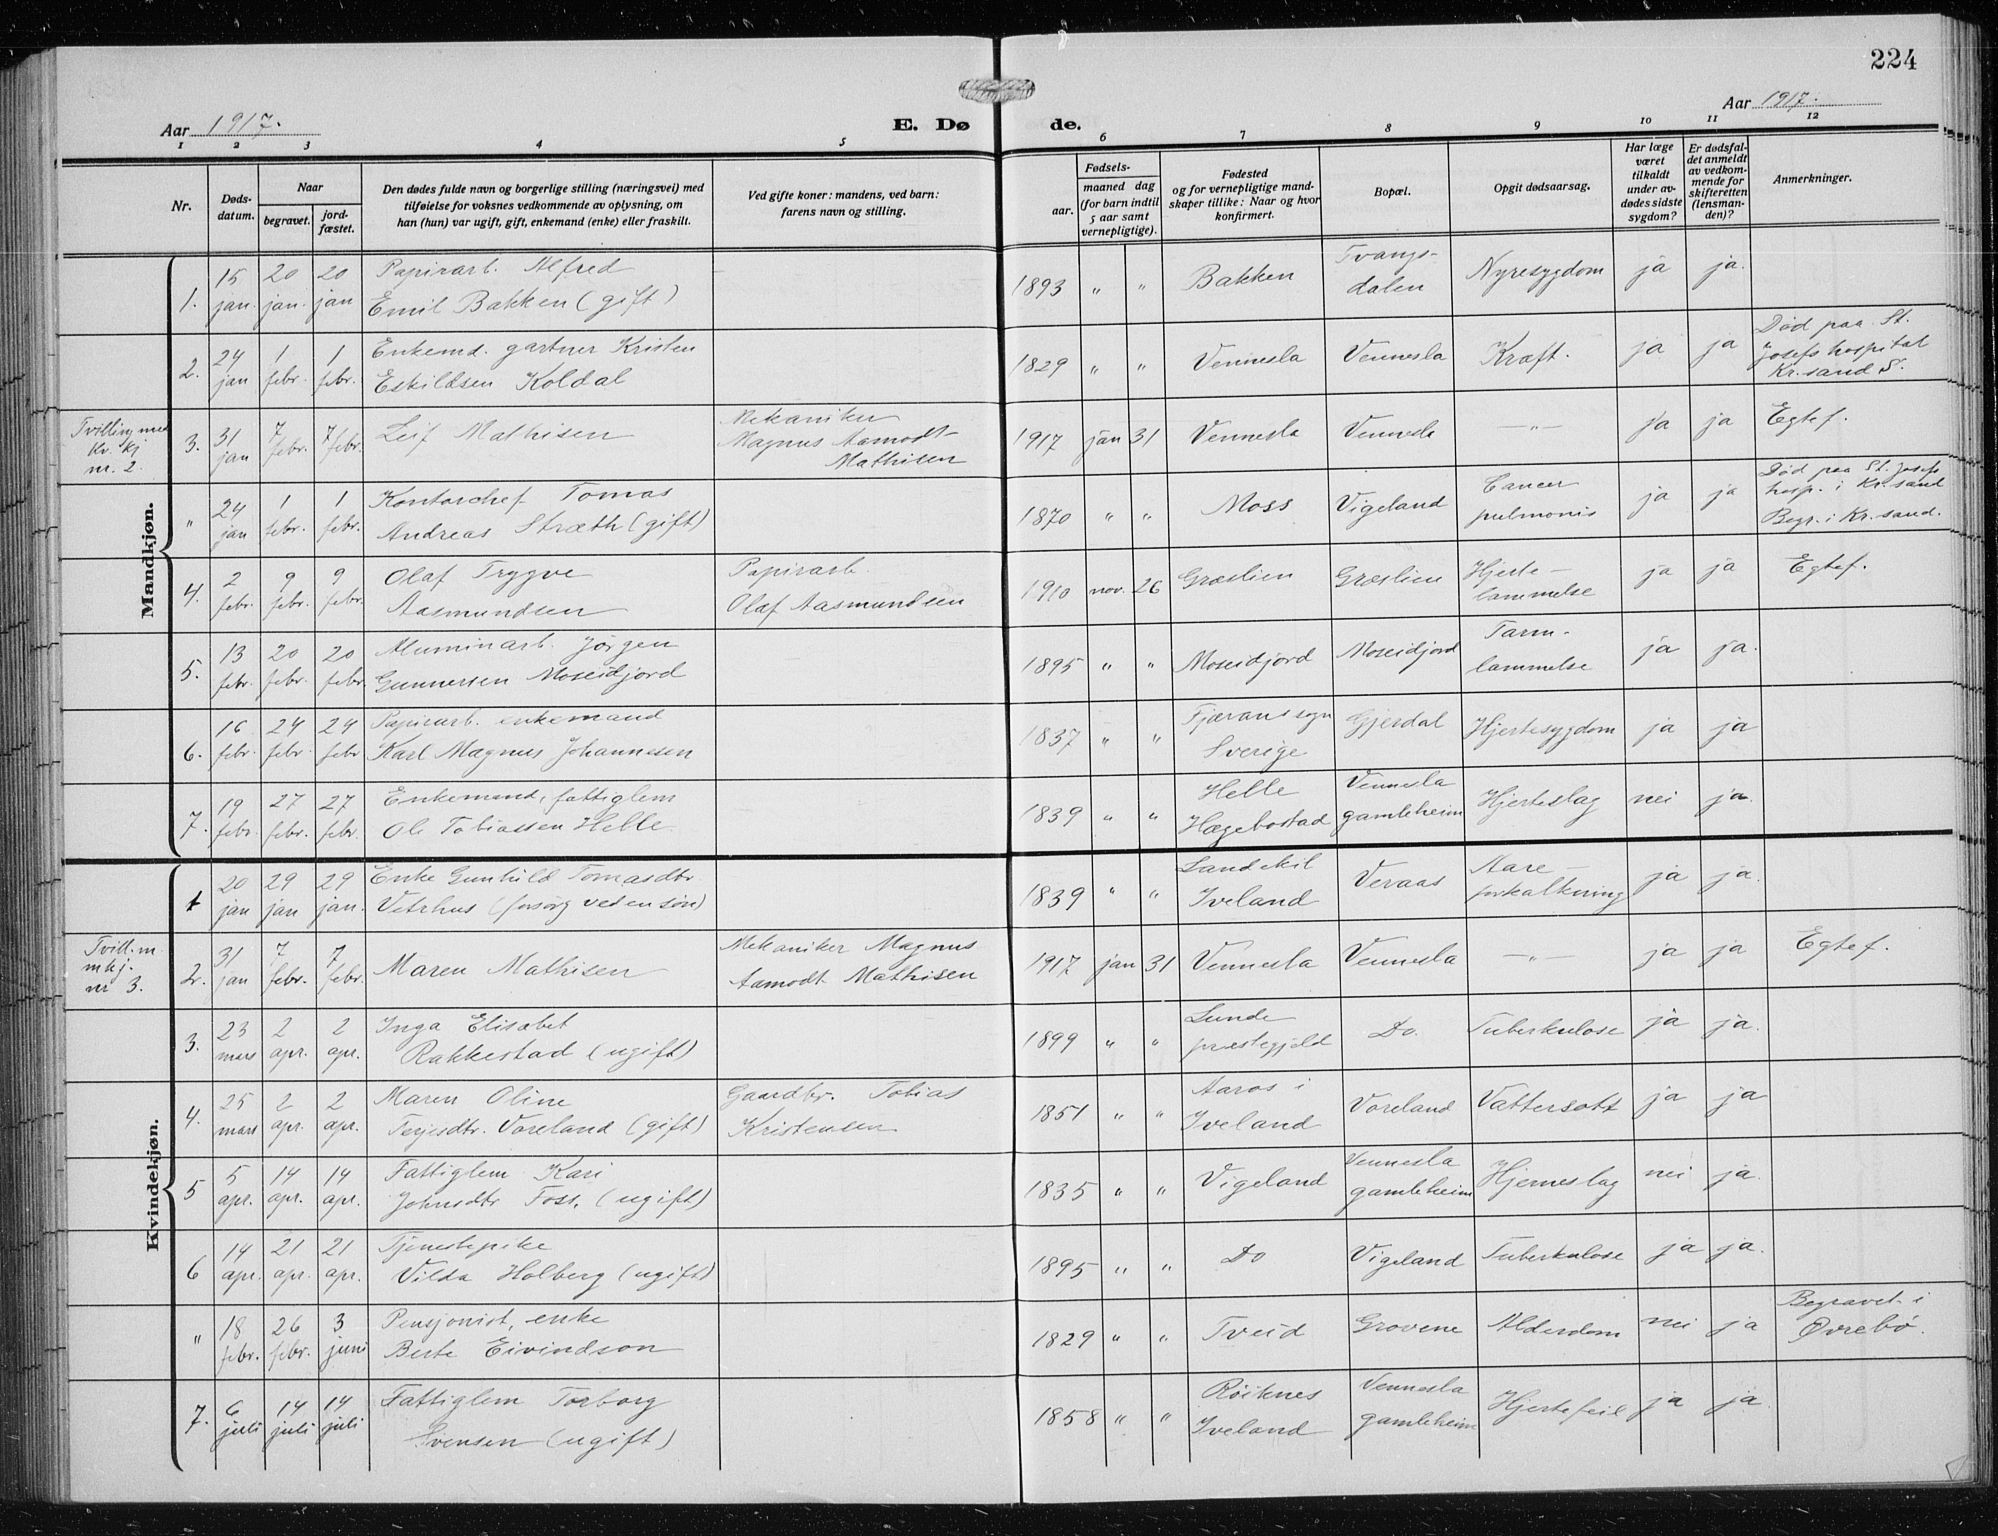 224
Aar 1917.
E. Døde.
Aar 1917.
1 2 3 4 5 6 7 8 9 10 11 12
Nr.
Døds-
datum.
Naar
begravet.
jord-
fæstet.
Den dødes fulde navn og borgerlige stilling (næringsvei) med
tilføielse for voksnes vedkommende av oplysning, om
han (hun) var ugift, gift, enkemand (enke) eller fraskilt.
Ved gifte koner: mandens, ved barn:
farens navn og stilling.
Fødsels-
aar.
maaned dag
(for barn indtil
5 aar samt
vernepligtige).
Fødested
og for vernepligtige mand-
skaper tillike: Naar og hvor
konfirmert.
Bopæl.
Opgit dødsaarsag.
Har læge
været
tilkaldt
under av-
dødes sidste
sygdom?
Er dødsfal-
det anmeldt
av vedkom-
mende for
skifteretten
(lensman-
den)?
Anmerkninger.
Mandkjøn.
1. 15 jan. 20 jan. 20 jan
Papirarb. Alfred
Emil Bakken (gift)
1893 " " Bakken
Tvangs-
dalen
Nyresygdom ja ja.
2. 24 jan 1 febr. 1 febr.
Enkemd. gartner Kristen
Eskildsen Koldal
1829 " " Vennesla Vennesla Kræft. ja ja
Død paa St.
Josefs hospital
Kr.sand S.
Tvilling med
Kv. kj
nr. 2.
3. 31 jan 7 febr. 7 febr.
Leif Mathisen
Mekaniker
Magnus Aamodt
Mathisen
1917 jan 31 Vennesla Vennesla —"— ja ja Egtef.
" 24 jan 1 febr. 1 febr.
Kontorchef Tomas
Andreas Stræth (gift)
1870 " " Moss Vigeland
Cancer
pulmonis
ja ja
Død paa St. Josefs
hosp. i Kr.sand
Begr. i Kr.sand.
4. 2 febr. 9 febr. 9 febr.
Olaf Trygve
Aasmundsen
Papirarb.
Olaf Aasmundsen
1910 nov. 26 Græslien Græslien
Hjerte-
lammelse
ja ja Egtef.
5. 13 febr. 20 febr. 20 febr.
Aluminarb. Jørgen
Gunnersen Moseidjord
1895 " " Moseidjord Moseidjord
Tarm-
lammelse
ja ja.
6. 16 febr. 24 febr. 24 febr
Papirarb. enkemand
Karl Magnus Johannesen
1837 " "
Fjæranssogn
Sverige
Gjerdal Hjertesygdom ja ja
7. 19 febr. 27 febr. 27 febr.
Enkemand, fattiglem
Ole Tobiassen Helle
1839 " "
Helle
Hægebostad
Vennesla
gamleheim
Hjerteslag nei ja
Kvindekjøn.
1 20 jan 29 jan 29 jan.
Enke Gunhild Tomasdtr.
Vetrhus (forsørg ved en søn)
1839 " "
Landekil
Iveland
Veraas
Aare-
forkalkning
ja ja.
Tvill. m
mkj.
nr 3.
2. 31 jan 7 febr. 7 febr.
Maren Mathisen
Mekaniker Magnus
Aamodt Mathisen
1917 jan 31 Vennesla Vennesla —"— ja ja Egtef.
3. 23 mars 2 apr. 2 apr.
Inga Elisabet
Rakkestad (ugift)
1899 " "
Lunde
præstegjeld
Do. Tuberkulose ja ja.
4. 25 mars 2 apr. 2 apr.
Maren Oline
Terjesdtr. Voreland (gift)
Gaardbr. Tobias
Kristensen
1851 " "
Aaros i
Iveland
Voreland Vattersott ja ja
5 5 apr. 14 apr. 14 apr.
Fattiglem Kari
Johnsdtr Foss. (ugift)
1835 " " Vigeland
Vennesla
gamleheim
Hjerneslag nei ja.
6 14 apr. 21 apr. 21 apr.
Tjenestepike
Vilda Holberg (ugift)
1895 " " Do Vigeland Tuberkulose ja ja.
" 18 febr. 26 febr. 3 juni
Pensjonist, enke
Berte Eivindson
1829 " " Tveid Grovene Alderdom nei ja
Begravet i
Øvrebø.
7. 6 juli 14 juli 14 juli
Fattiglem Torborg
Svensen (ugift)
1858 " "
Røiknes
Iveland
Vennesla
gamleheim
Hjertefeil ja ja.